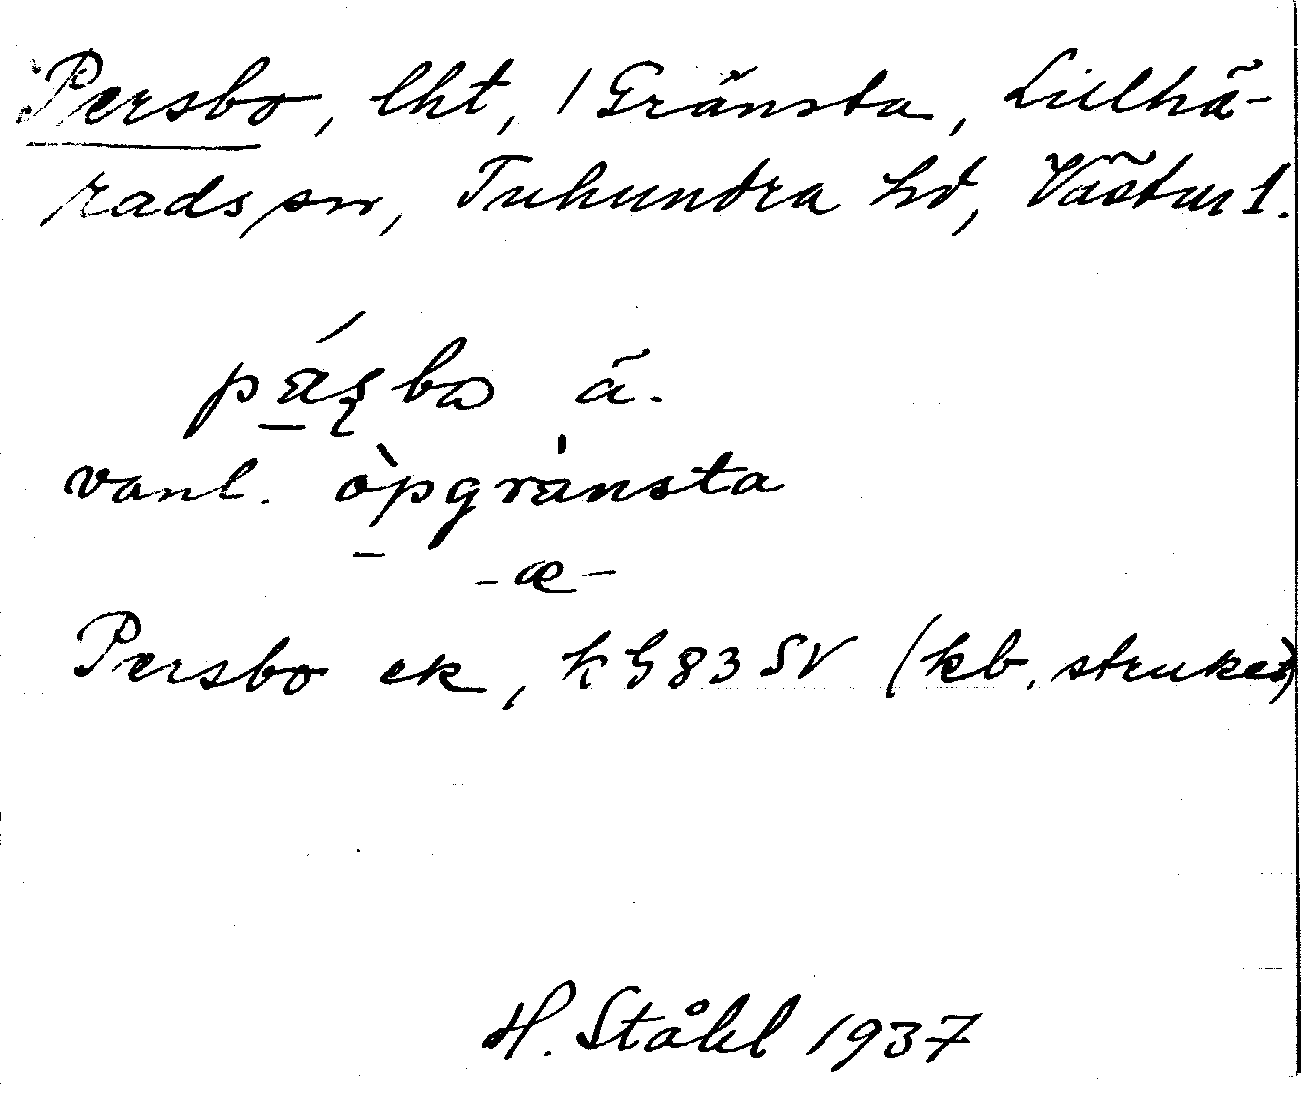 Persbo, lht, i Gränsta, Lillhä-
rads sn, Tuhundra hd, Västml.
bo ä.
vanl. òpgränsta
-æ-
Persbo ek, k G 83 SV (kb. struket)
H. Ståhl 1937